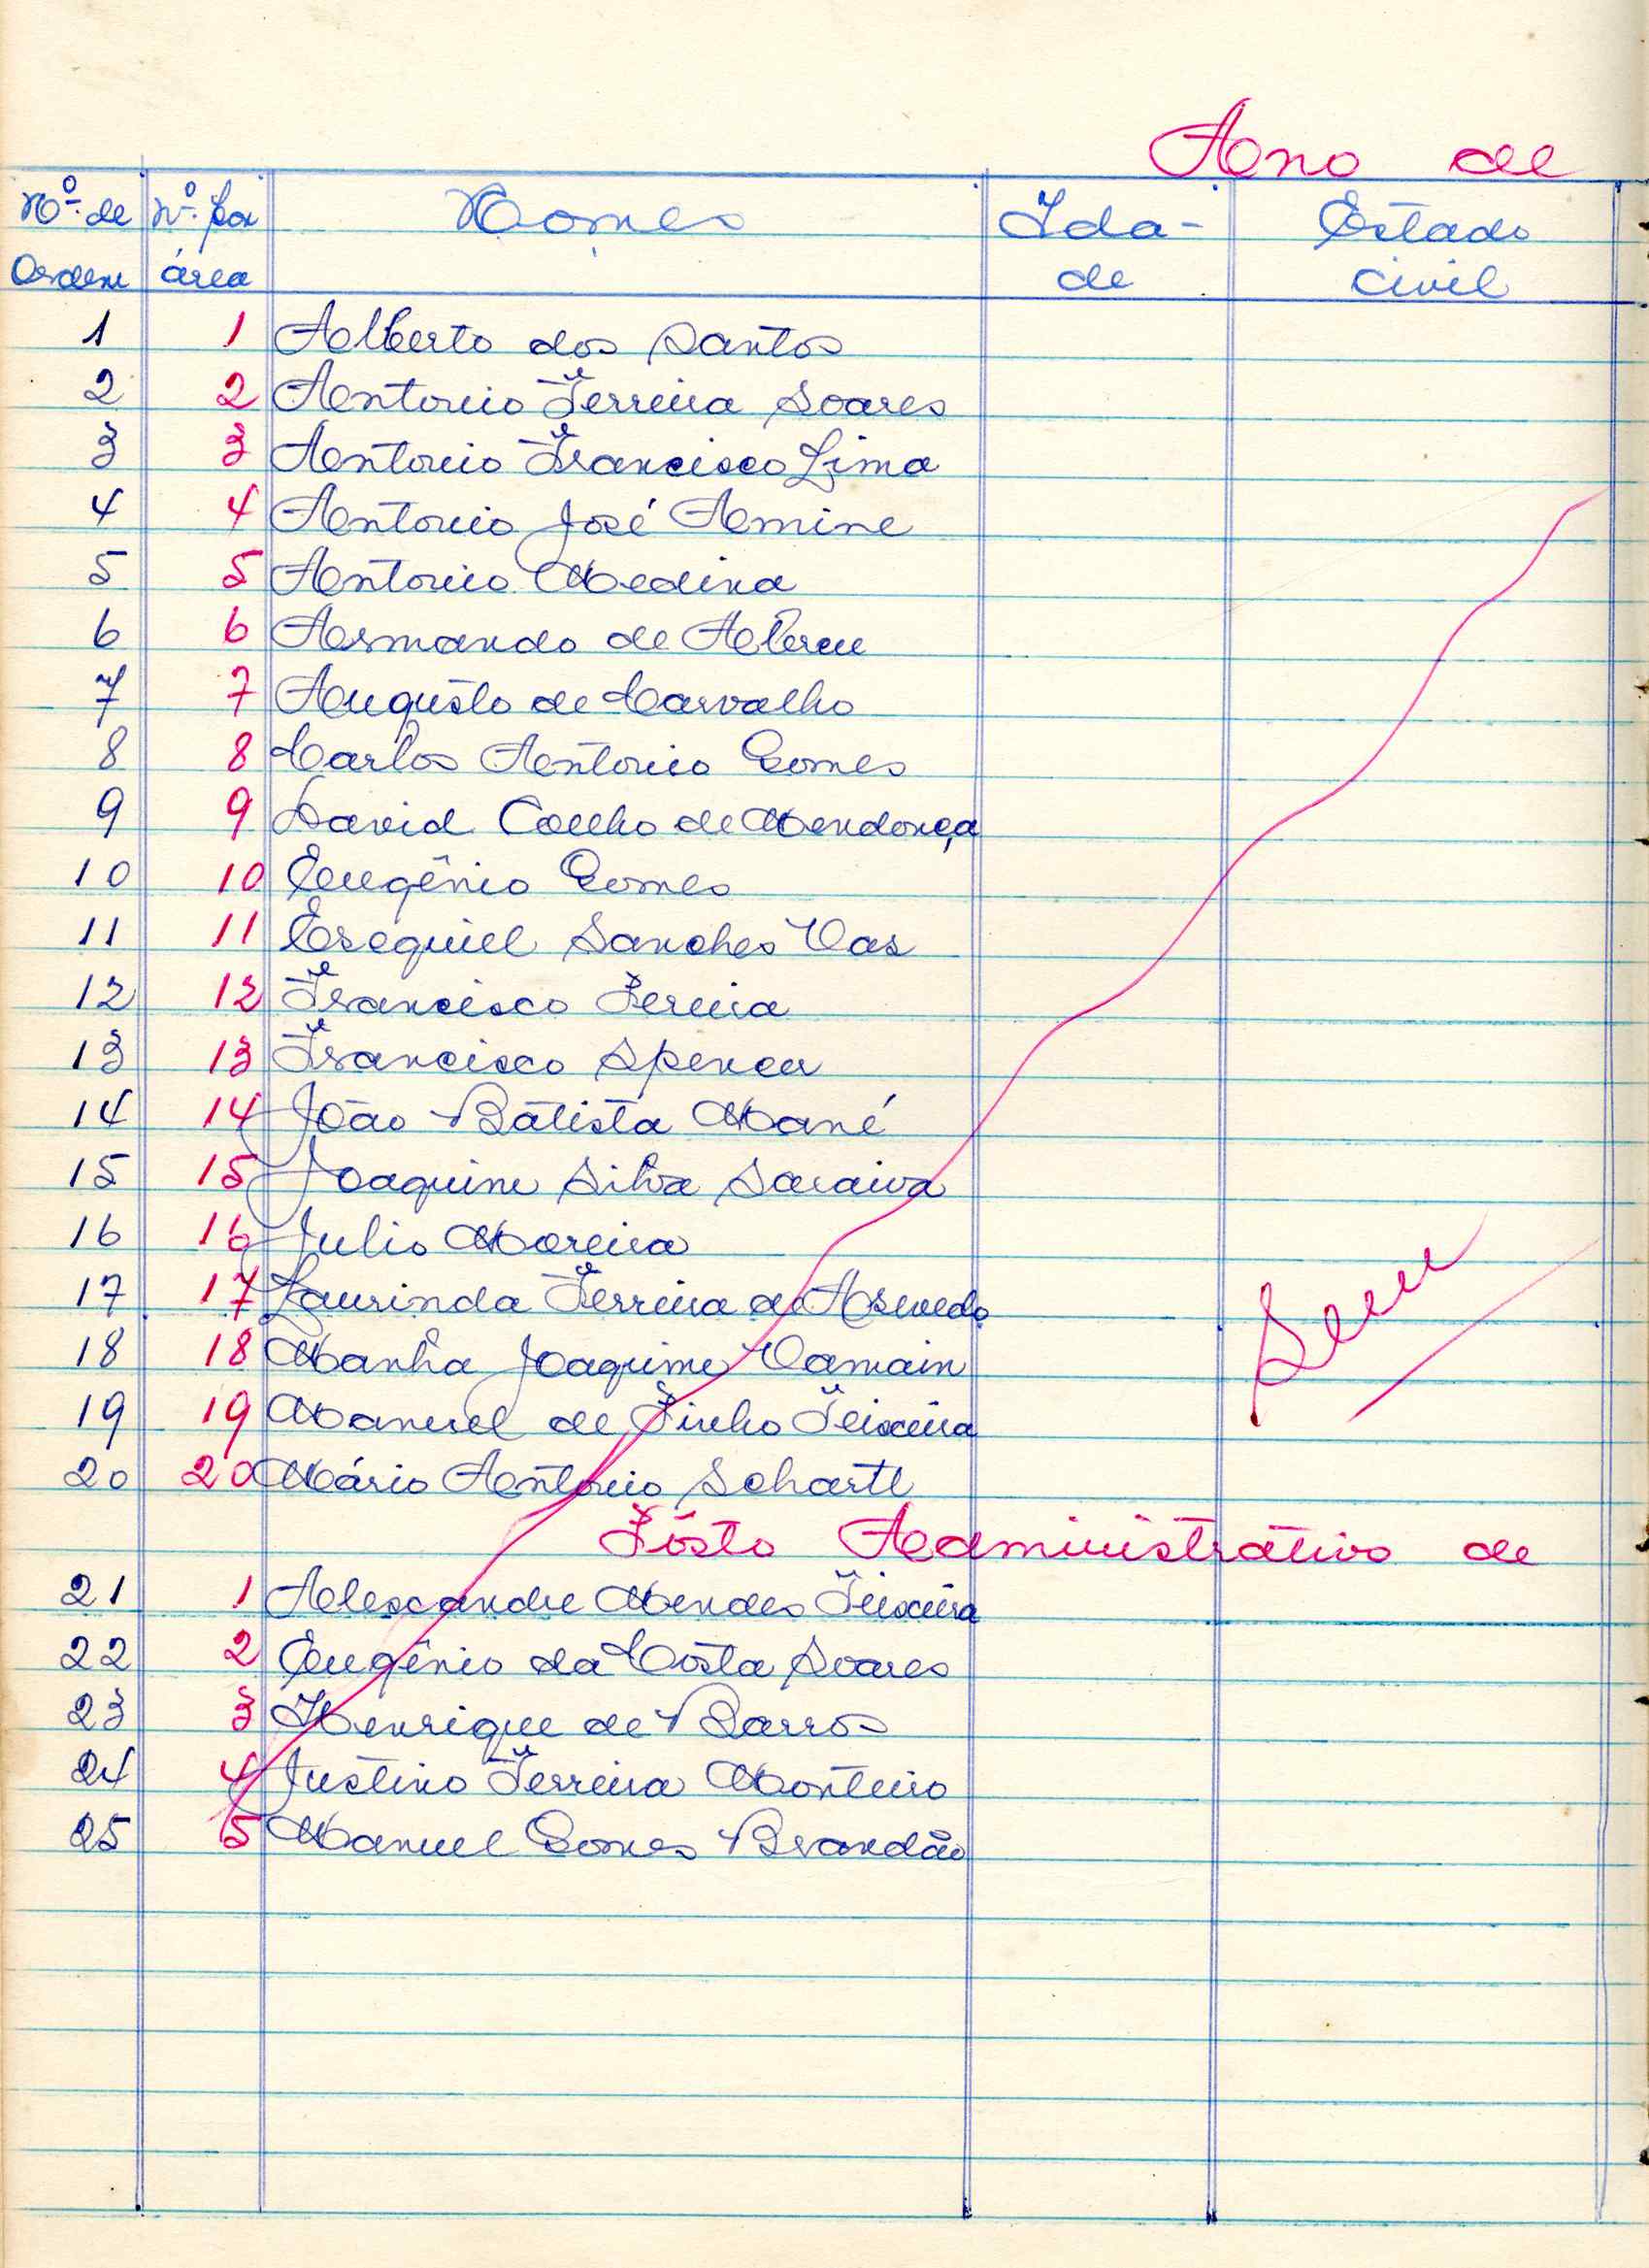 Ano de
Nº de Nº por Nomes Ida- Estado
Ordem área de civil
1 1 Alberto dos Santos
2 2 Antonio Ferreira Soares
3 3 Antonio Francisco Lima
4 4 Antonio José Amine
5 5 Antonio Medina
6 6 Armando de Abreu
7 7 Augusto de Carvalho
8 8 Carlos Antonio Gomes
9 9 David Coelho de Mendonça
10 10 Eugênio Gomes
11 11 Esequiel Sanches Vas
12 12 Francisco Pereira
13 13 Francisco Spencer
14 14 João Batista Mané
15 15 Joaquim Silva Saraiva
16 16 Julio Moreira
17 17 Laurinda Ferreira de Asevedo
18 18 Manha Joaquim Vamain
19 19 Manuel de Pinho Teixeira
20 20 Mário Antonio Schartt
Pôsto Administrativo de
21 1 Alexandre Mendes Teixeira
22 2 Eugênio da Costa Soares
23 3 Henrique de Barros
24 4 Justino Ferreira Monteiro
25 5 Manuel Gomes Brandão